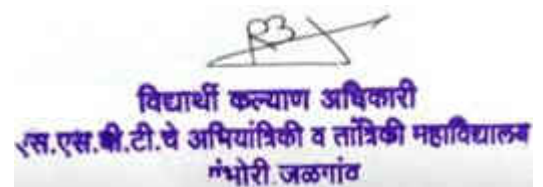 विद्यार्थी कल्याण अधिकारी
एस.एस.बी.टी.चे अभियांत्रिकी व तांत्रिकी महाविद्यालय
बंभोरी जळगांव